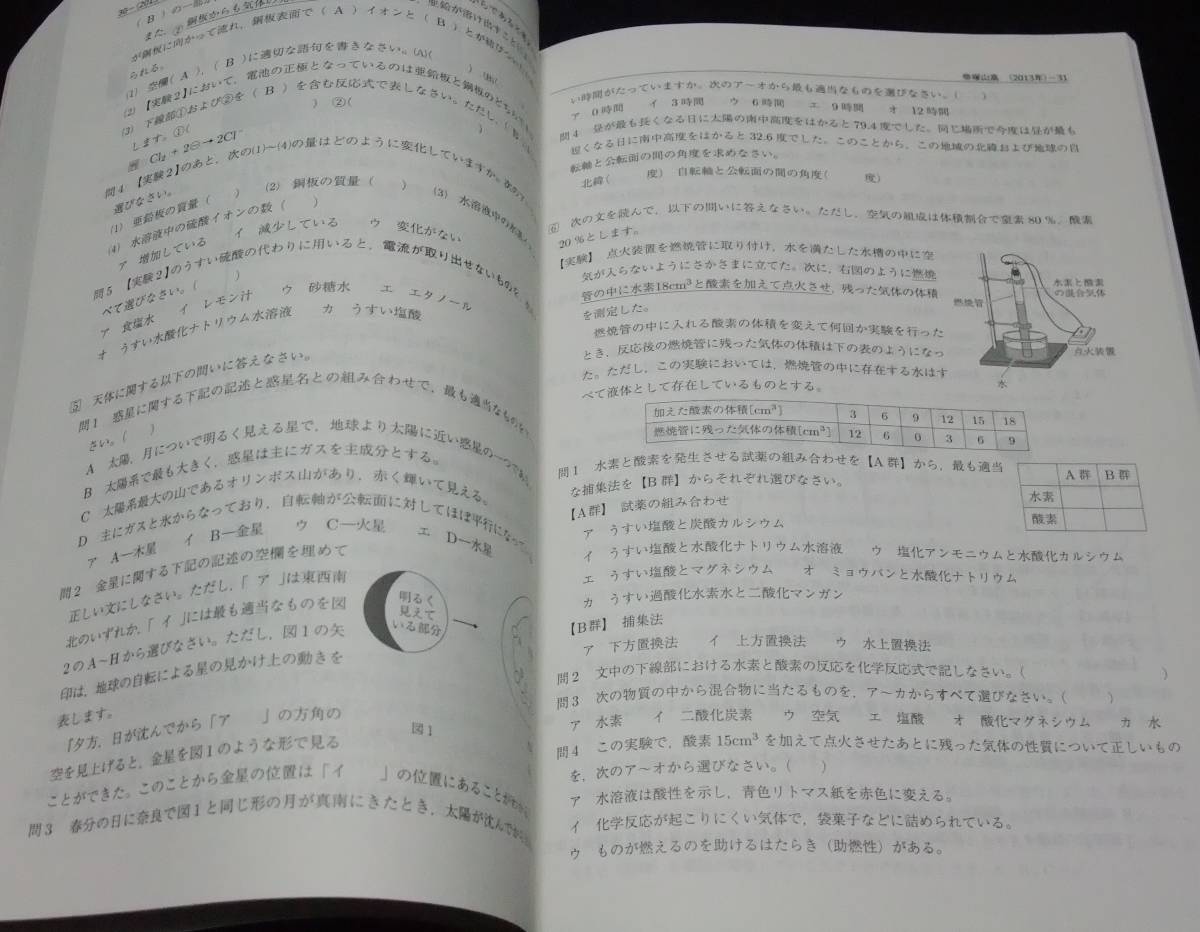 （B）の一部が
また，②銅板からも気体の
が銅板に向かって流れ，銅板表面で（A）イオンと（B）とが結び
られる。
(1) 空欄（A），（B）に適切な語句を書きなさい。(A)（　　）(B)（
(2) 【実験2】において，電池の正極となっているのは亜鉛板と銅板のどちら
(3) 下線部①および②を（B）を含む反応式で表しなさい。ただし，
します。①（　　）②（　　）
例 Cl₂ + 2⊖ → 2Cl⁻
問4 【実験2】のあと，次の(1)〜(4)の量はどのように変化していますか。次の
選びなさい。
(1) 亜鉛板の質量（　　） (2) 銅板の質量（　　） (3) 水溶液中の
(4) 水溶液中の硫酸イオンの数（　　）
ア 増加している　イ 減少している　ウ 変化がない
問5 【実験2】のうすい硫酸の代わりに用いると，電流が取り出せないものを，
べて選びなさい。（　　）
ア 食塩水　イ レモン汁　ウ 砂糖水　エ エタノール
オ うすい水酸化ナトリウム水溶液　カ うすい塩酸
5 天体に関する以下の問いに答えなさい。
問1 惑星に関する下記の記述と惑星名との組み合わせで，最も適当なものを
さい。（　　）
A 太陽，月についで明るく見える星で，地球より太陽に近い惑星の一つである。
B 太陽系で最も大きく，惑星は主にガスを主成分とする。
C 太陽系最大の山であるオリンポス山があり，赤く輝いて見える。
D 主にガスと氷からなっており，自転軸が公転面に対してほぼ平行になって
ア A―木星　イ B―金星　ウ C―火星　エ D―水星
問2 金星に関する下記の記述の空欄を埋めて
正しい文にしなさい。ただし，「ア」は東西南
北のいずれか，「イ」には最も適当なものを図
2のA〜Hから選びなさい。ただし，図1の矢
印は，地球の自転による星の見かけ上の動きを
表します。
『夕方，日が沈んでから「ア　　」の方角の
空を見上げると，金星を図1のような形で見る
ことができた。このことから金星の位置は「イ　　」の位置にあることがわか
明るく
見えて
いる部分
図1
問3 春分の日に奈良で図1と同じ形の月が真南にきたとき，太陽が沈んでから
帝塚山高 (2013年)－31
い時間がたっていますか。次のア〜オから最も適当なものを選びなさい。（　　）
ア 0時間　イ 3時間　ウ 6時間　エ 9時間　オ 12時間
問4 昼が最も長くなる日に太陽の南中高度をはかると79.4度でした。同じ場所で今度は昼が最も
短くなる日に南中高度をはかると32.6度でした。このことから，この地域の北緯および地球の自
転軸と公転面の間の角度を求めなさい。
北緯（　　度）　自転軸と公転面の間の角度（　　度）
6 次の文を読んで，以下の問いに答えなさい。ただし，空気の組成は体積割合で窒素80％，酸素
20％とします。
【実験】 点火装置を燃焼管に取り付け，水を満たした水槽の中に空
気が入らないようにさかさまに立てた。次に，右図のように燃焼
管の中に水素18cm³と酸素を加えて点火させ，残った気体の体積
を測定した。
燃焼管の中に入れる酸素の体積を変えて何回か実験を行った
とき，反応後の燃焼管に残った気体の体積は下の表のようになっ
た。ただし，この実験においては，燃焼管の中に存在する水はす
べて液体として存在しているものとする。
水素と酸素
の混合気体
燃焼管
点火装置
水
加えた酸素の体積[cm³] 3 6 9 12 15 18
燃焼管に残った気体の体積[cm³] 12 6 0 3 6 9
問1 水素と酸素を発生させる試薬の組み合わせを【A群】から，最も適当
な捕集法を【B群】からそれぞれ選びなさい。
A群 B群
水素
酸素
【A群】 試薬の組み合わせ
ア うすい塩酸と炭酸カルシウム
イ うすい塩酸と水酸化ナトリウム水溶液　ウ 塩化アンモニウムと水酸化カルシウム
エ うすい塩酸とマグネシウム　オ ミョウバンと水酸化ナトリウム
カ うすい過酸化水素水と二酸化マンガン
【B群】 捕集法
ア 下方置換法　イ 上方置換法　ウ 水上置換法
問2 文中の下線部における水素と酸素の反応を化学反応式で記しなさい。（　　）
問3 次の物質の中から混合物に当たるものを，ア〜カからすべて選びなさい。（　　）
ア 水素　イ 二酸化炭素　ウ 空気　エ 塩酸　オ 酸化マグネシウム　カ 水
問4 この実験で，酸素15cm³を加えて点火させたあとに残った気体の性質について正しいもの
を，次のア〜オから選びなさい。（　　）
ア 水溶液は酸性を示し，青色リトマス紙を赤色に変える。
イ 化学反応が起こりにくい気体で，袋菓子などに詰められている。
ウ ものが燃えるのを助けるはたらき（助燃性）がある。